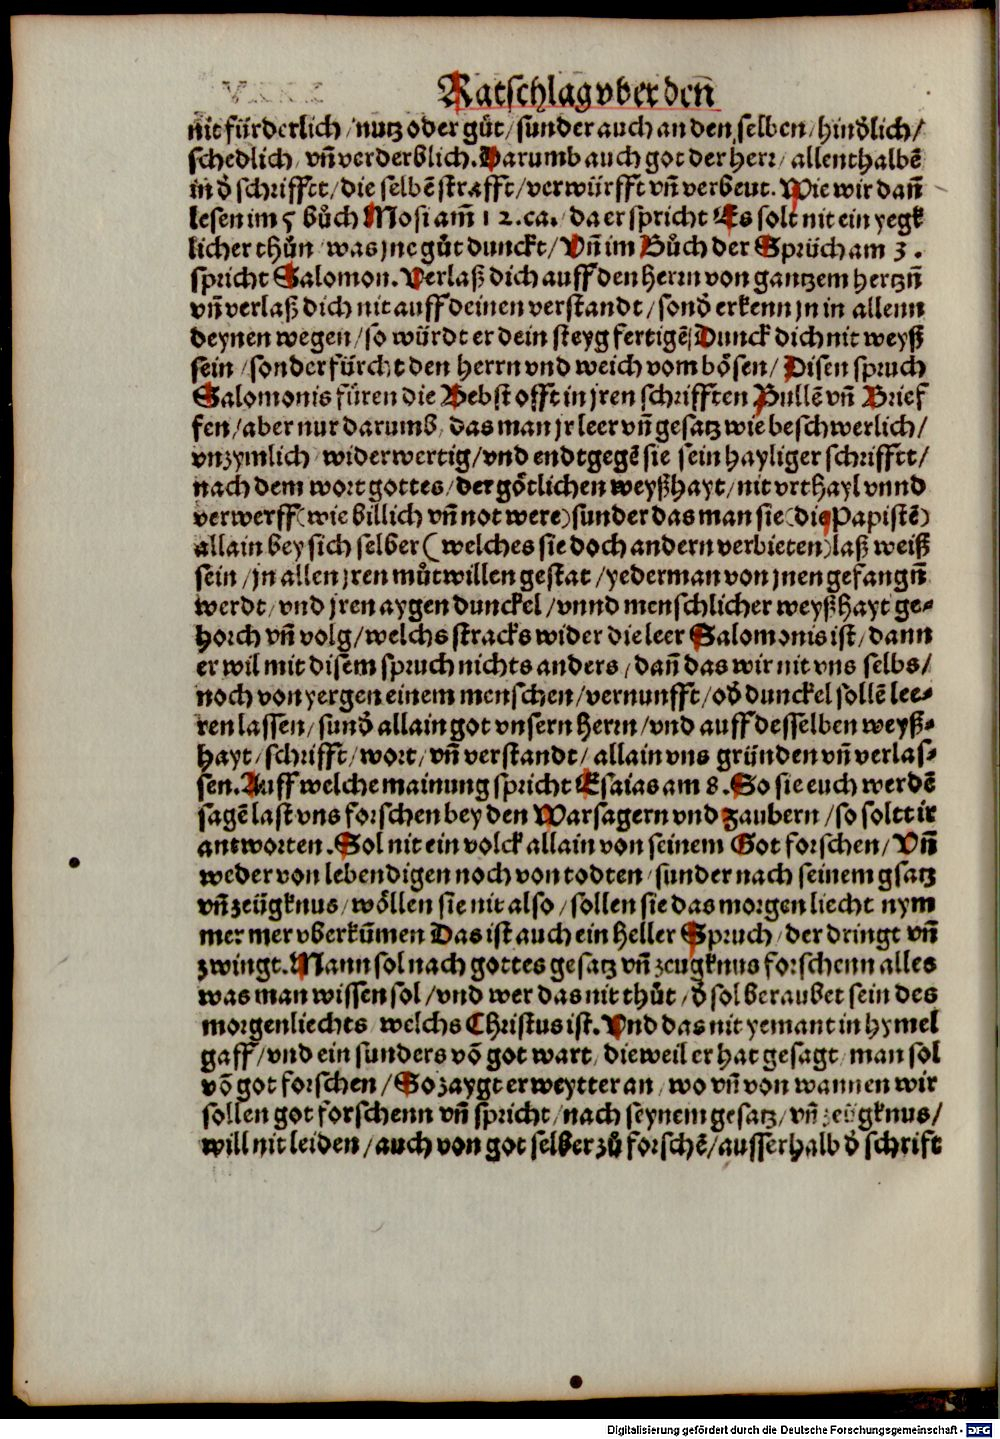 Ratschlag vber den̄
nit fürderlich / nutz oder gůt / sunder auch an den selben / hindlich /
schedlich / vn̄ verderblich. Darumb auch got der herr / allenthalbē
in d̓ schrifftt / die selbē strafft / verwürfft vn̄ verbeut. Wie wir dan̄
lesen im 5 bůch Mosi am̄ 12. ca. / da er spricht Es solt nit ein yegk
licher thůn / was jne gůt dunckt / Vn̄ im Bůch der Sprüch am 3.
spricht Salomon. Verlaß dich auff den herrn von gantzem hertzn̄
vn̄ verlaß dich nit auff deinen verstandt / sond̓ erkenn jn in allenn
deynen wegen / so würdt er dein steyg fertigē / Dunck dich nit weyß
sein / sonder fürcht den herrn vnd weich vom bösen / Disen spruch
Salomonis füren die Bebst offt in jren schrifften Bullē vn̄ Brief
fen / aber nur darumb / das man jr leer vn̄ gesatz wie beschwerlich /
vnzymlich / widerwertig / vnd endtgegē sie sein hayliger schrifftt /
nach dem wort gottes / der götlichen weyßhayt / nit vrthayl vnnd
verwerff (wie billich vn̄ not were) sunder das man sie (die Papistē)
allain bey sich selber (welches sie doch andern verbieten) laß weiß
sein / jn allen jren můtwillen gestat / yederman von jnen gefangn̄
werdt / vnd jren aygen dunckel / vnnd menschlicher weyßhayt ge⸗
horch vn̄ volg / welchs stracks wider die leer Salomonis ist / dann
er wil mit disem spruch nichts anders / dan̄ das wir nit vns selbs /
noch von yergen einem menschen / vernunfft / od̓ dunckel sollē lee⸗
ren lassen / sund̓ allain got vnsern herrn / vnd auff desselben weyß⸗
hayt / schrifft / wort / vn̄ verstandt / allain vns gründen vn̄ verlas⸗
sen. Auff welche mainung spricht Esaias am 8. So sie euch werdē
sagē last vns forschen bey den Warsagern vnd zaubern / so soltt ir
antworten. Sol nit ein volck allain von seinem Got forschen / Vn̄
weder von lebendigen noch von todten / sunder nach seinem gsatz
vn̄ zeügknus / wöllen sie nit also / sollen sie das morgenliecht nym
mer mer vberkūmen Das ist auch ein heller Spruch / der dringt vn̄
zwingt. Mann sol nach gottes gesatz vn̄ zeugknus forschenn alles
was man wissen sol / vnd wer das nit thůt / d̓ sol beraubet sein des
morgenliechts / welchs Christus ist. Vnd das nit yemant in hymel
gaff / vnd ein sunders vō got wart / dieweil er hat gesagt / man sol
vō got forschen / So zaygt er weytter an / wo vn̄ von wannen wir
sollen got forschenn vn̄ spricht / nach seynem gesatz / vn̄ zeügknus /
will nit leiden / auch von got selber zů forschē / ausserhalb d̓ schrift
Digitalisierung gefördert durch die Deutsche Forschungsgemeinschaft - DFG